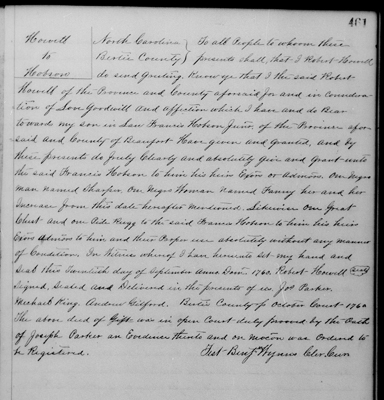 451
Howell
to
Hobson
North Carolina
Bertie County
To all People to whom these
presents shall, that I Robert Howell
do send Greeting. Know ye that I the said Robert
Howell of the Province and County aforesaid for and in considera-
tion of Love Goodwill and affection which I have and do Bear
toward my son in law Francis Hobson Junr. of the Province afore-
said and County of Beaufort Have given and Granted, and by
these presents do freely Clearly and absolutely Give and Grant unto
the said Francis Hobson to him his heirs Exrs or Admrs. One Negro
man Named Sharper. One Negro Woman Named Fanny her and her
Increase from this date hereafter mentioned. Likewise One Great
Chest and one to the said Francis Hobson to him his heirs
Exrs Admrs to him, and their Proper use absolutely without any manner
of Condition. In Witness whereof I have hereunto set my hand and
seal this Twentieth day of September Anno Dom 1760. Robert Howell (Seal)
Signed, Sealed and Delivered in the presents of us Jos Parker.
Michael King. Andrew Gilford. Bertie County fs October Court - 1760
The above deed of Gift was in open Court duly proved by the Oath
of Joseph Parker an Evidence thereto and on motion was Ordered to
be Registered. Test. Benjn Wynns Cler. Cur